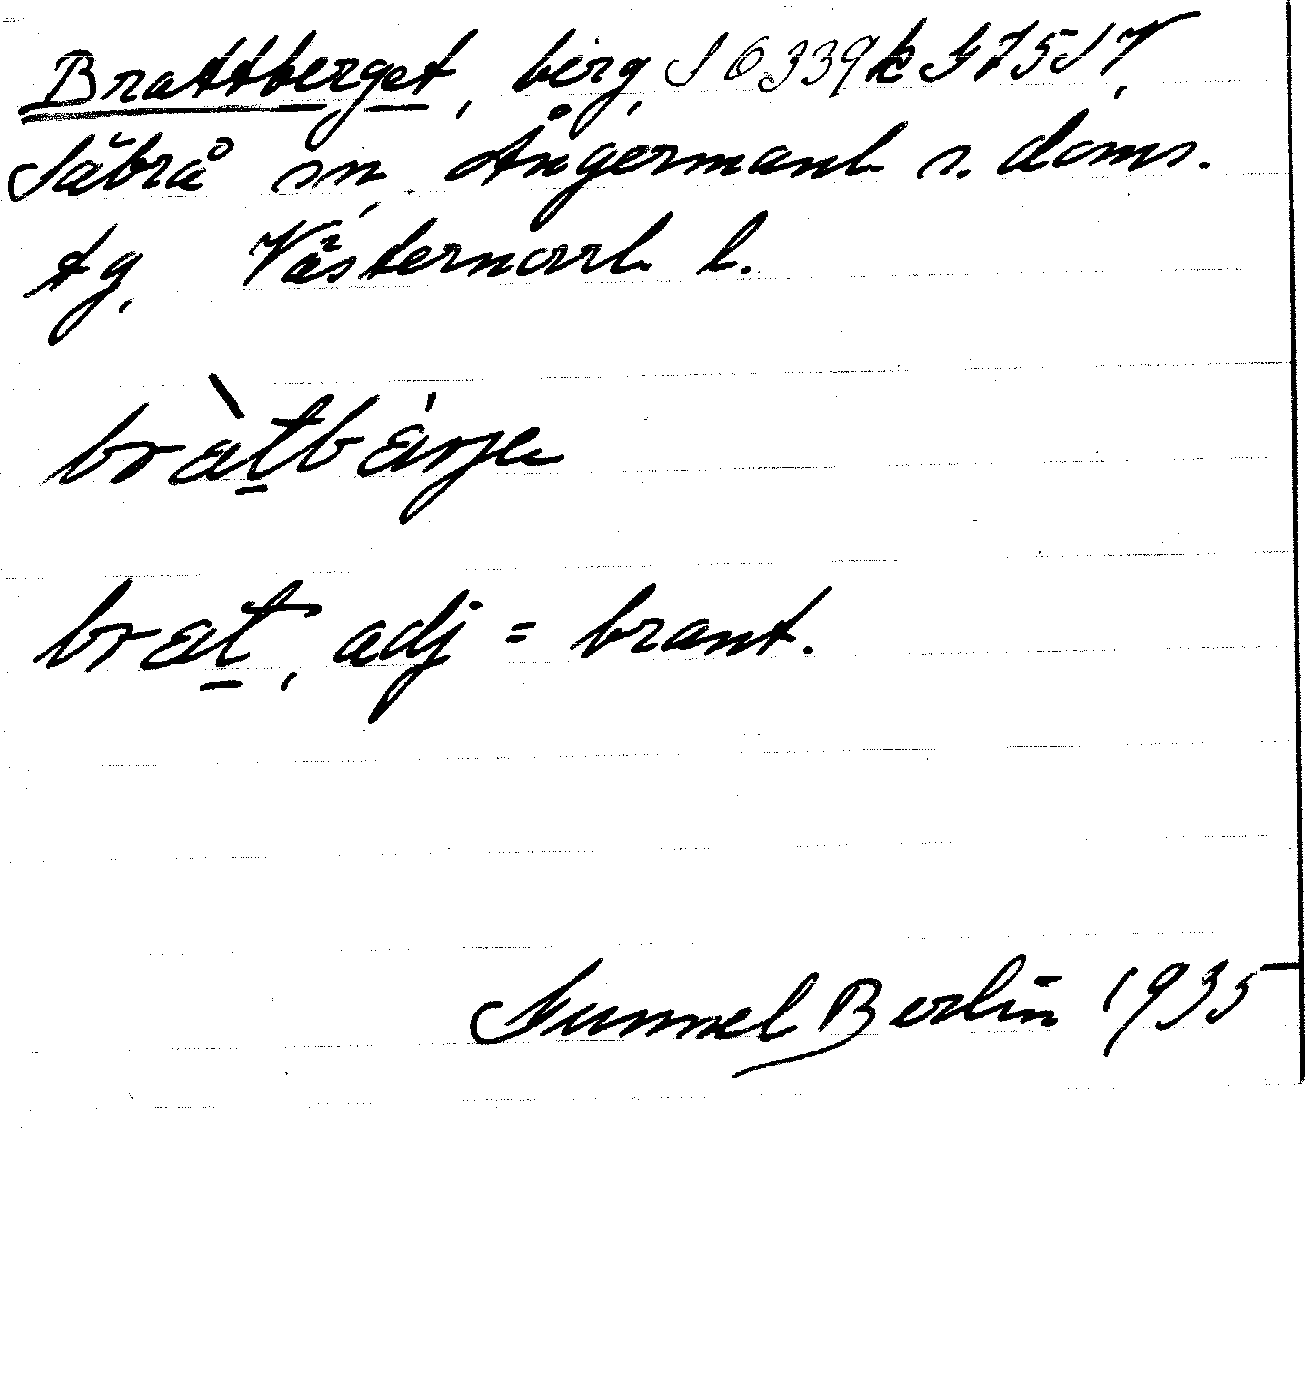 Brattberget, berg,
Säbrå sn, Ångermanl. s. doms.
tg, Västernorrl. l.
bràtbärje
brat, adj = brant.
Nunnel Berlin 1935